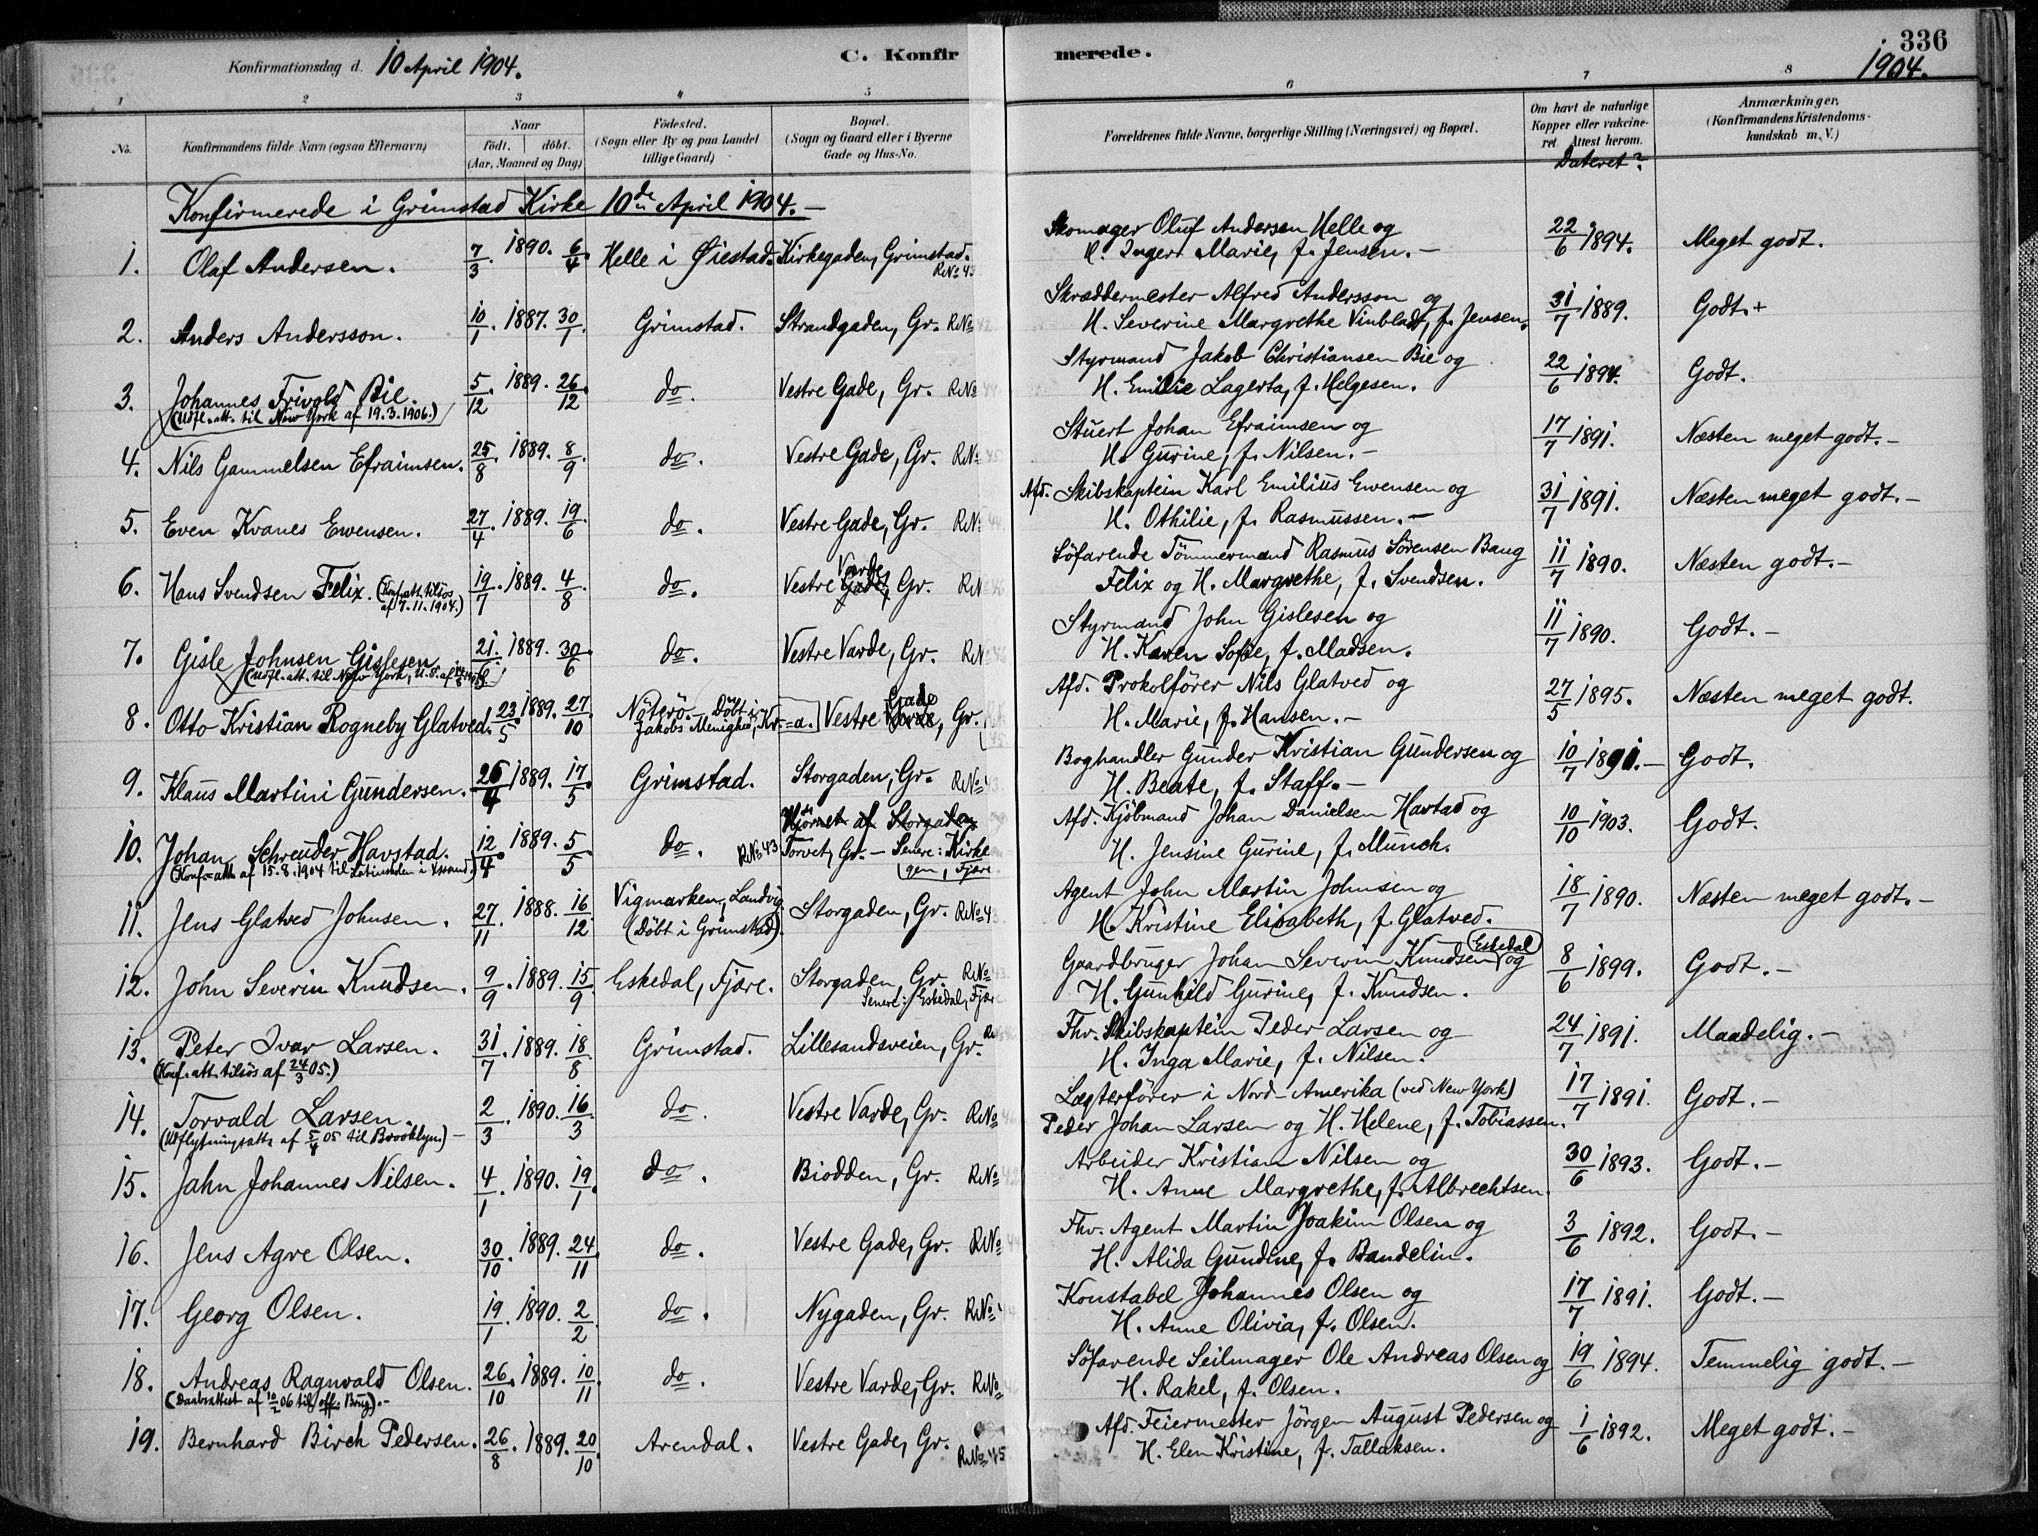 336
Konfirmationsdag d. 10 April 1904. C. Konfirmerede. 1904.
1 2 3 4 5 6 7 8
No. Konfirmandens fulde Navn (ogsaa Efternavn) Naar födt. döbt. (Aar, Maaned og Dag) Födested. (Sogn eller By og paa Landet tillige Gaard) Bopæl. (Sogn og Gaard eller i Byerne Gade og Hus-No. Forældrenes fulde Navne, borgerlige Stilling (Næringsvei) og Bopæl. Om havt de naturlige Kopper eller vakcineret Attest herom. Dateret? Anmærkninger, (Konfirmandens Kristendomskundskab m. V.)
Konfirmerede i Grimstad Kirke 10de April 1904.-
1. Olaf Andersen. 7/3. 1890. 6/4 Helle i Øiestad. Kirkegaden, Grimstad. R.No 43 Skomager Oluf Andersen Helle og
H. Inger Marie, f. Jensen.- 22/6 1894. Meget godt.
2. Anders Andersson. 10/1. 1887. 30/1. Grimstad. Strandgaden, Gr. R.No Skræddermester Alfred Andersson og
H. Severine Margrethe Vinblad, f. Jensen. 31/7 1889. Godt.+
3. Johannes Frivold Bie. 5/12. 1889. 26/12. do. Vestre Gade, Gr. R.No Styrmand Jakob Christiansen Bie og
(Udfl. att. til New York af 19.3.1906.) H. Emilie Lagerta, f. Helgesen. 22/6 1894. Godt.
4. Nils Gammelsen Efraimsen. 25/8 1889. 8/9 do. Vestre Gade, Gr. R.No Stuert Johan Efraimsen og
H. Gurine, f. Nilsen.- 17/7 1891. Næsten meget godt.-
5. Even Kvanes Ewensen. 27/4. 1889. 19/6 do. Vestre Gade, Gr. R.No Afd. Skibskaptein Karl Emilius Ewensen og
H. Othilie, f. Rasmussen.- 31/7 1891. Næsten meget godt.-
6. Hans Svendsen Felix. (Konf. att. tilsös af 7.11.1904.) 19/7. 1889. 4/8 do. Vestre Gade, Varde Gr. R.No Söfarende Tömmermand Rasmus Sörensen Bang
Felix og H. Margrethe, f. Svendsen. 11/7 1890. Næsten godt.-
7. Gisle Johnsen Gislesen. 21. 1889. 30/6. do. Vestre Varde, Gr. R.No Styrmand John Gislesen og
(Udfl. att. til New York, U.S. af) H. Karen Sofie, f. Madsen. 11/7 1890. Godt.-
8. Otto Kristian Rogneby Glatved. 23/5 1889. 27/10 Nöterö. Döbt i Jakobs Menighed, Kr=a. Vestre Varde, Gade Gr. Afd. Prokolförer Nils Glatved og
H. Marie, f. Hansen.- 27/5 1895. Næsten meget godt.
9. Klaus Martini Gundersen. 26/4 1889. 17/5. Grimstad. Storgaden, Gr. R.No 43 Boghandler Gunder Kristian Gundersen og
H. Beate, f. Staff.- 10/7 1891.- Godt.
10. Johan Schreuder Havstad. 12/4. 1889. 5/5 do. R.No 43. Hjörnet af Storgaden
Torvet, Gr.- Senere: Kirke gen, Fjære. Afd. Kjöbmand Johan Danielsen Havstad og
(Konf.=att. af 15.8.1904 til Latinskolen i) H. Jensine Gurine, f. Münch. 10/10 1903. Godt.
11. Jens Glatved Johnsen. 27/11. 1888. 16/12 Vigmarken, Landvig (Döbt i Grimstad). Storgaden, Gr. R.No 43. Agent John Martin Johnsen og
H. Kristine Elisabeth, f. Glatved. 18/7 1890. Næsten meget godt.-
12. John Severin Knudsen. 9/9. 1889. 15/9. Eskedal, Fjære. Storgaden, Gr. R.No 43.
Senere: Eskedal, Fjære Gaardbruger Johan Severin Knudsen Eskedal og
H. Gunhild Gurine, f. Knudsen. 8/6 1899. Godt.-
13. Peter Ivar Larsen. 31/7. 1889. 18/8 Grimstad. Lillesandsveien, Gr. Fhv. Skibskaptein Peder Larsen og
(Konf. att. tilsös af 24/3 05.) H. Inga Marie, f. Nilsen. 24/7. 1891. Maadelig.-
14. Torvald Larsen. 2/3. 1890. 16/3 do. Vestre Varde, Gr. R.No Lægterförer i Nord-Amerika (ved New York)
(Udflytningsatt. af 5/4 05 til Brooklyn)- Peder Johan Larsen og H. Helene, f. Tobiassen. 17/7 1891. Godt.-
15. Jahn Johannes Nilsen. 4/1. 1890. 19/1. do. Biodden, Gr. R.No Arbeider Kristian Nilsen og
H. Anne Margrethe, f. Albrechtsen. 30/6 1893. Godt.-
16. Jens Agre Olsen. 30/10. 1889. 24/11 do. Vestre Gade, Gr. R.No Fhv. Agent Martin Joakim Olsen og
H. Alida Gundine, f. Bandelin. 3/6 1892. Godt.-
17. Georg Olsen. 19/1. 1890. 2/2. do. Nygaden, Gr. R.No Konstabel Johannes Olsen og
H. Anne Olivia, f. Olsen. 17/7 1891. Godt.-
18. Andreas Ragnvald Olsen. 26/10. 1889. 10/11 do. Vestre Varde, Gr. R.No Söfarende Seilmager Ole Andreas Olsen og
(Daabsattest af 10/2 06 til off. Brug).- H. Rakel, f. Olsen. 19/6 1894. Temmelig godt.-
19. Bernhard Birch Pedersen. 26/8. 1889. 20/10 Arendal. Vestre Gade, Gr. R.No 45 Afd. Feiermester Jörgen August Pedersen og
H. Elen Kristine, f. Tallaksen. 1/6 1892. Meget godt.-